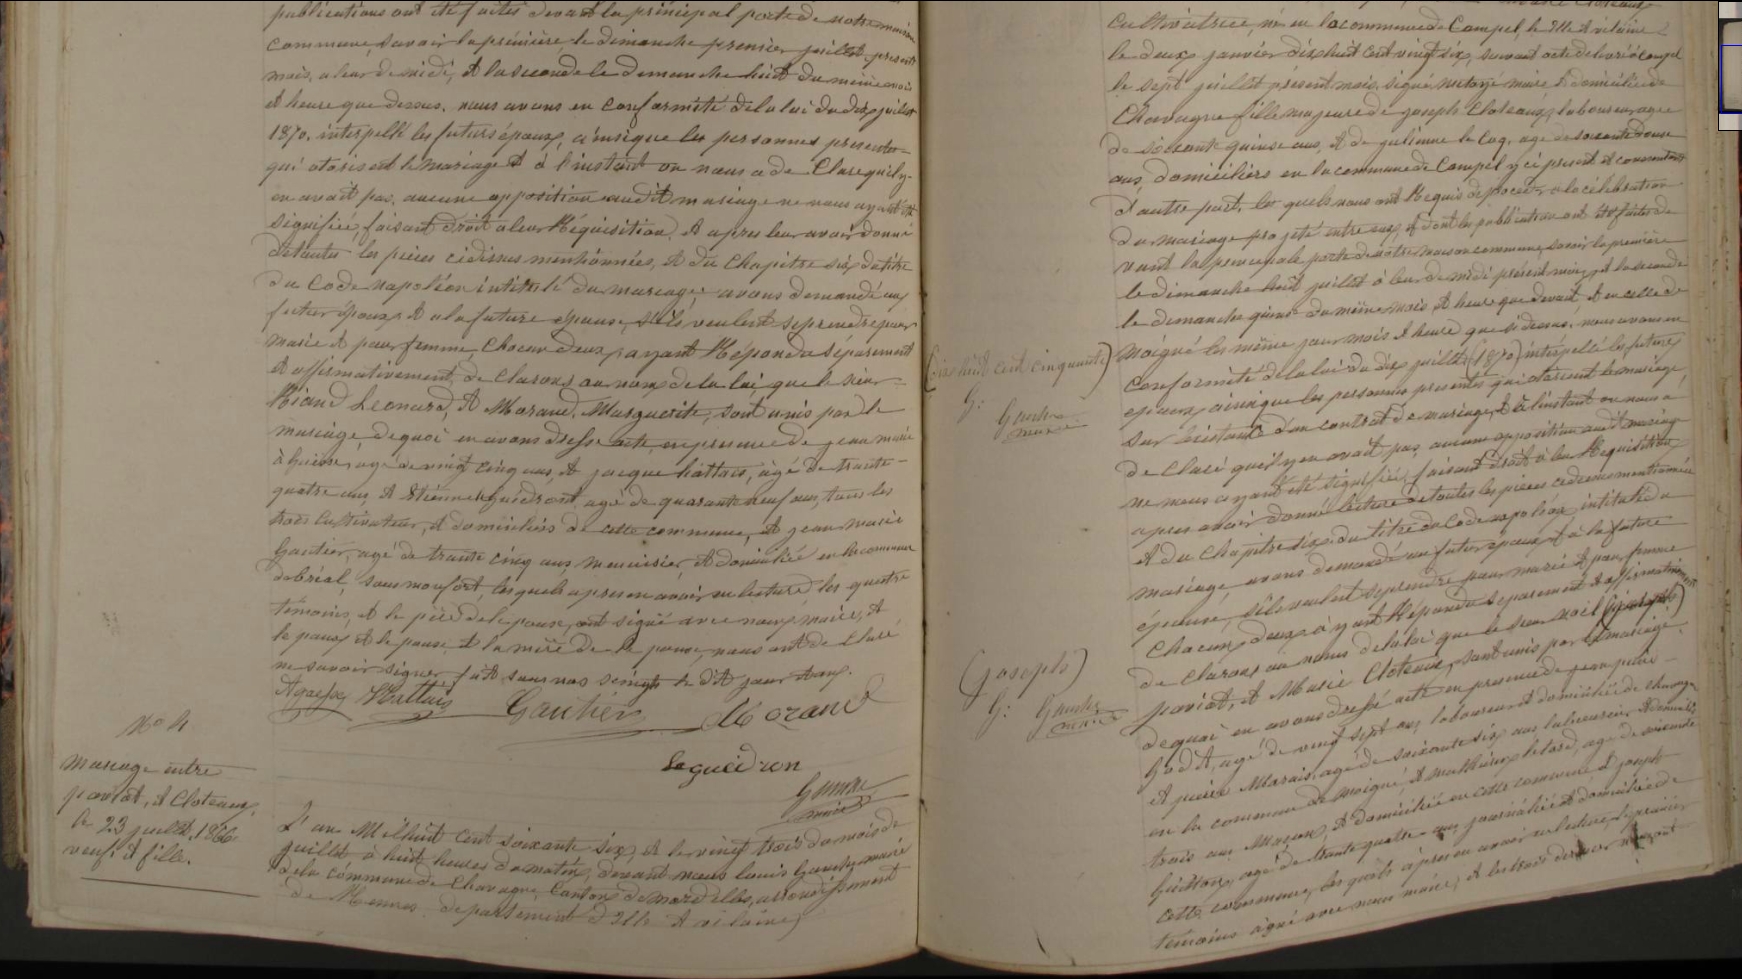 publications ont été faites devant la principal porte de notre maison
commune, savoir la première, le dimanche premier juillet présent
mois, a leur de midi, & la seconde le dimanche huit du même mois
& heure que dessus. nous avons en conformité de la loi du dix juillet
1870. interpellé les futurs épouse, ainsique les personnes presentes
qui otorisent le mariage & à l'instant on nous a de Claré quil y
en avait pas, aucune opposition audit mariage ne nous ayant été
signifiée faisant droit a leur Réquisition, & apres leur avoir donné
de toutes les pièces cidessus mentionnées, & du Chapitre six du titre
du Code napoléon intitulé du mariage; avons demandé au
futur épouse & a la future épouse, s'ils veulent seprendre pour
marie & pour femme, Chacun deux ayant Répondu séparement
& affirmativement, de Clarons au nom de la loi, que le sieur
Léonard, & Morand, Marguerite, sont unis par le
mariage, de quoi en avons dressé acte, en présence de jean marie
agé de vingt cinq ans, & jacque hattais, âgé de trante
quatre ans, & étienne agé de quarante neuf ans, tous les
trois Cultivateur, & domiciliés de cette commune, & jean marie
Gautier, agé de trante cinq ans, menuisier, & domicilié en la commune
de bréal, sous monfort, lesquels apres en avoir eu lecture, les quatre
témoins, & le père de le pouse, ont signé avec nous, maire, &
le poux & le pouse & la mère de le pouse, nous ont de Claré
ne savoir signer fait sous nos seings le dit jour & an.
Hattais Gautier Morand
Leguédron
maire
No 4
Mariage entre
pariat, & Cloteaux,
le 23 juillet 1866
veuf & fille.
L'an Mil huit cent soixante six, & le vingt trois du mois de
juillet à huit heures du matin, devant nous louis maire
de la commune de Chavagne, Canton de mordelles, arrondissement
de Rennes departement d'Ille & vilaine,
Cultivatrice, née en la commune de Campel, le Ille & vilaine
le deux janvier dix huit cent vingt six, suivant acte délivré à Campel
le sept juillet présent mois, signé maire & domiciliée de
Chavagne fille majeure de joseph Cloteaux, laboureur, agé
de soixante quinse ans, & de julienne le Coq, age de soixante douse
ans, domiciliers en la commune de Campel, y ci present & consentants
d'autre part, les quels nous ont Requis de proceder a la célébration
du mariage projeté entre eux, & dont les publications ont été faites de
vant la principale porte de notre maison commune, savoir la première
le dimanche huit juillet à leur de midi présent mois, & la seconde
le dimanche quinse du même mois & heure que devant & en celle de
Moigné les même jour mois & heure que si dessus, nous avons en
conformité de la loi du dix juillet (1870) interpellé les futures
epoux, ainsique les personnes presentes qui otorisent le mariage,
sur l'existance d'un contrat de mariage, & à l'instant on nous a
de Claré quil y en avait pas, aucune opposition audit mariage
ne nous ayant été signifiée, faisant droit à leur Requisition
apres avoir donné lecture de toutes les pieces cidessus mentionnées
& du Chapitre six, du titre du Code napoléon, intitulé du
mariage, avons demandé au futur épouse & à la future
épouse, s'ils veulent seprendre pour marie & pour femme
Chacun deux ayant Répondu séparement & affirmativement
de Clarons au nom de la loi que le sieur noël (joseph)
pariat, & Marie Cloteaux, sont unis par le mariage.
de quoi en avons dressé acte en presence de jean
agé de vingt sept ans, laboureur & domicilié de Chavagne
& pierre Marais, agé de soixante six ans, laboureur, & domicilié
en la commune de Moigné, & mathurin agé de soixante
trois ans Maçon, & domicilié en cette commune & joseph
agé de trante quatre ans journalier & domicilié de
cette commune, les quels apres en avoir eu lecture, le premier
temoins signé avec nous maire, & les trois derniers
(dix huit cent cinquante)
G:
maire
(joseph)
G:
maire